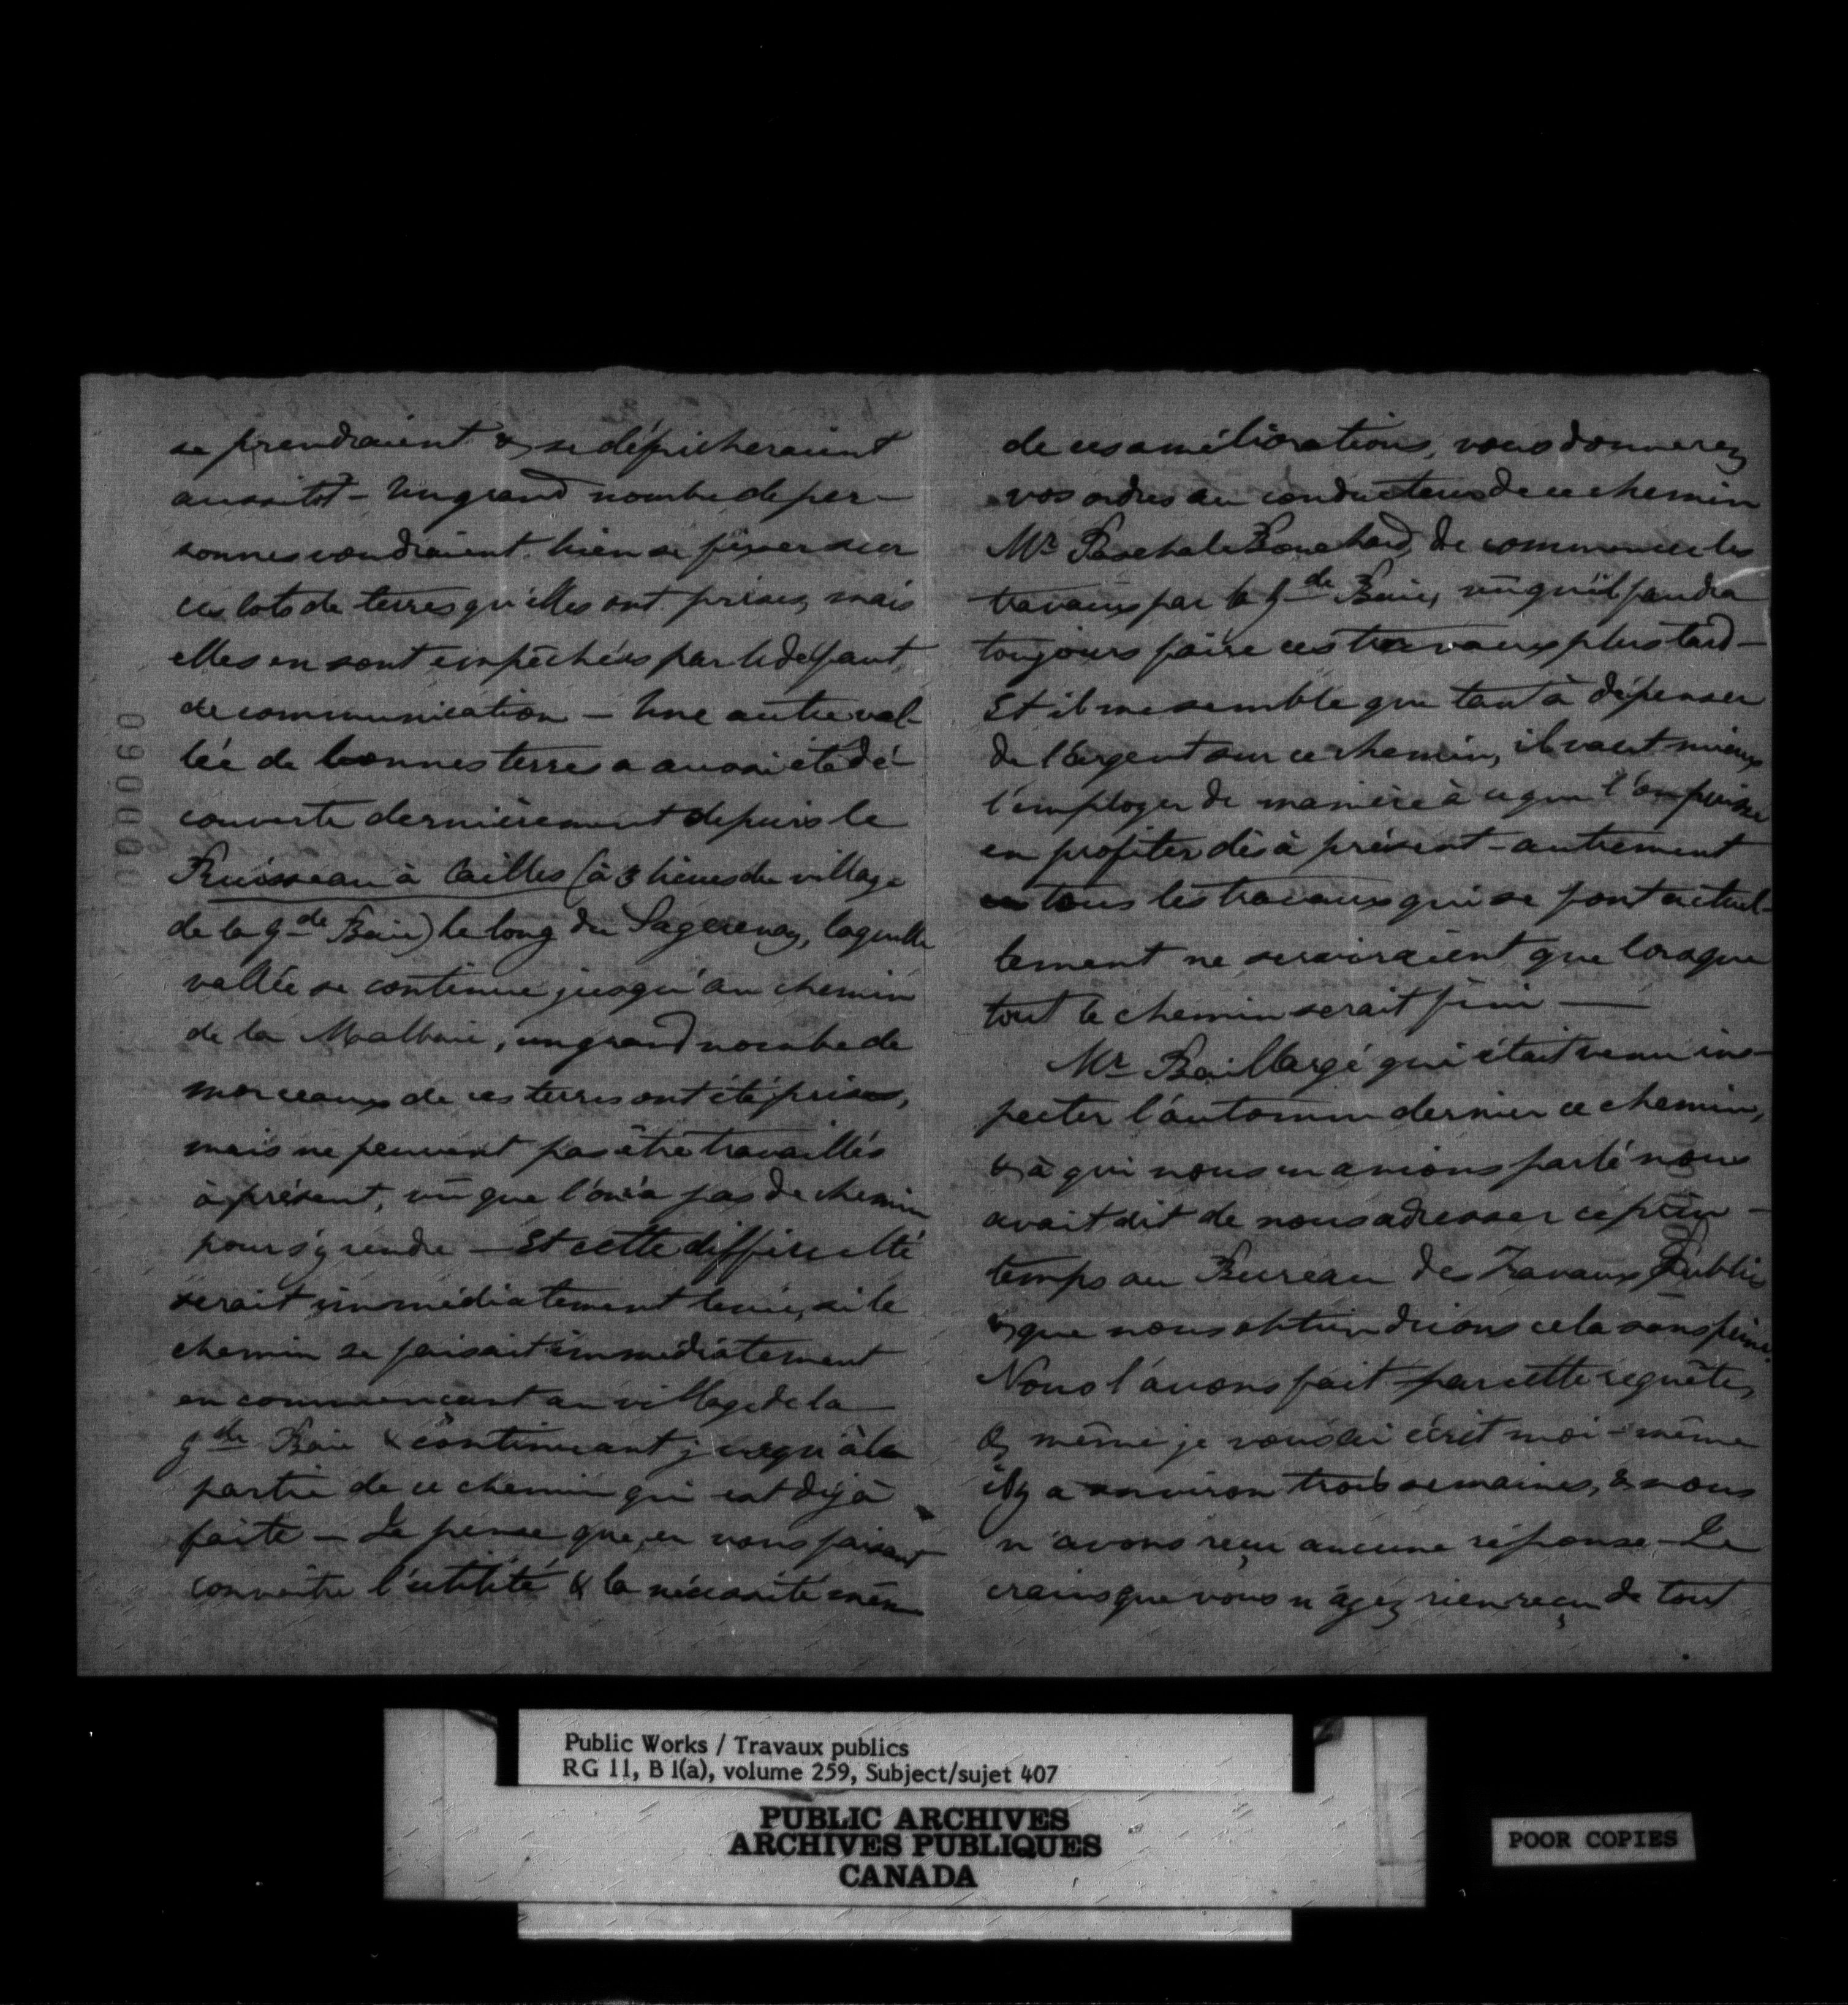 se prendraient & se défricheraient
aussitôt – Un grand nombre de per-
sonnes voudraient bien se fixer sur
ces lots de terres qu'elles ont prises, mais
elles en sont empêchées par le défaut
de communication – Une autre val-
lée de bonnes terres a aussi été dé-
couverte dernièrement depuis le
Ruisseau à Cailles (à 3 lieues du village
de la gde Baie) le long du Saguenay, laquelle
vallée se continue jusqu'au chemin
de la Malbaie, un grand nombre de
morceaux de ces terres ont été prises,
mais ne peuvent pas être travaillés
à présent, vû que l'on n'a pas de chemin
pour s'y rendre – Et cette difficulté
serait immédiatement levée, si le
chemin se faisait immédiatement
en commençant au village de la
gde Baie & continuant jusqu'à la
partie de ce chemin qui est déjà
faite – Je pense que, en vous faisant
connaître l'utilité & la nécessité même
de ces améliorations, vous donnerez
vos ordres au conducteur de ce chemin
Mr Paschal Bouchard, de commencer les
travaux par la gde Baie, vû qu'il faudra
toujours faire ces travaux plus tard –
Et il me semble que tant à dépenser
de l'argent sur ce chemin, il vaut mieux
l'employer de manière à ce que l'on puisse
en profiter dès à présent – autrement
tous les travaux qui se font actuel-
lement ne serviraient que lorsque
tout le chemin serait fini —
Mr Baillargé qui était venu ins-
pecter l'automne dernier ce chemin,
& à qui nous en avions parlé nous
avait dit de nous adresser ce prin-
temps au Bureau des Travaux Publics
& que nous obtiendrions cela sans peine.
Nous l'avons fait par cette requête,
& même je vous ai écrit moi-même
il y a environ trois semaines, & nous
n'avons reçu aucune réponse – Je
crains que vous n'ayez rien reçu de tout
00060
Public Works / Travaux publics
RG 11, B 1(a), volume 259, Subject/sujet 407
PUBLIC ARCHIVES
ARCHIVES PUBLIQUES
CANADA
POOR COPIES